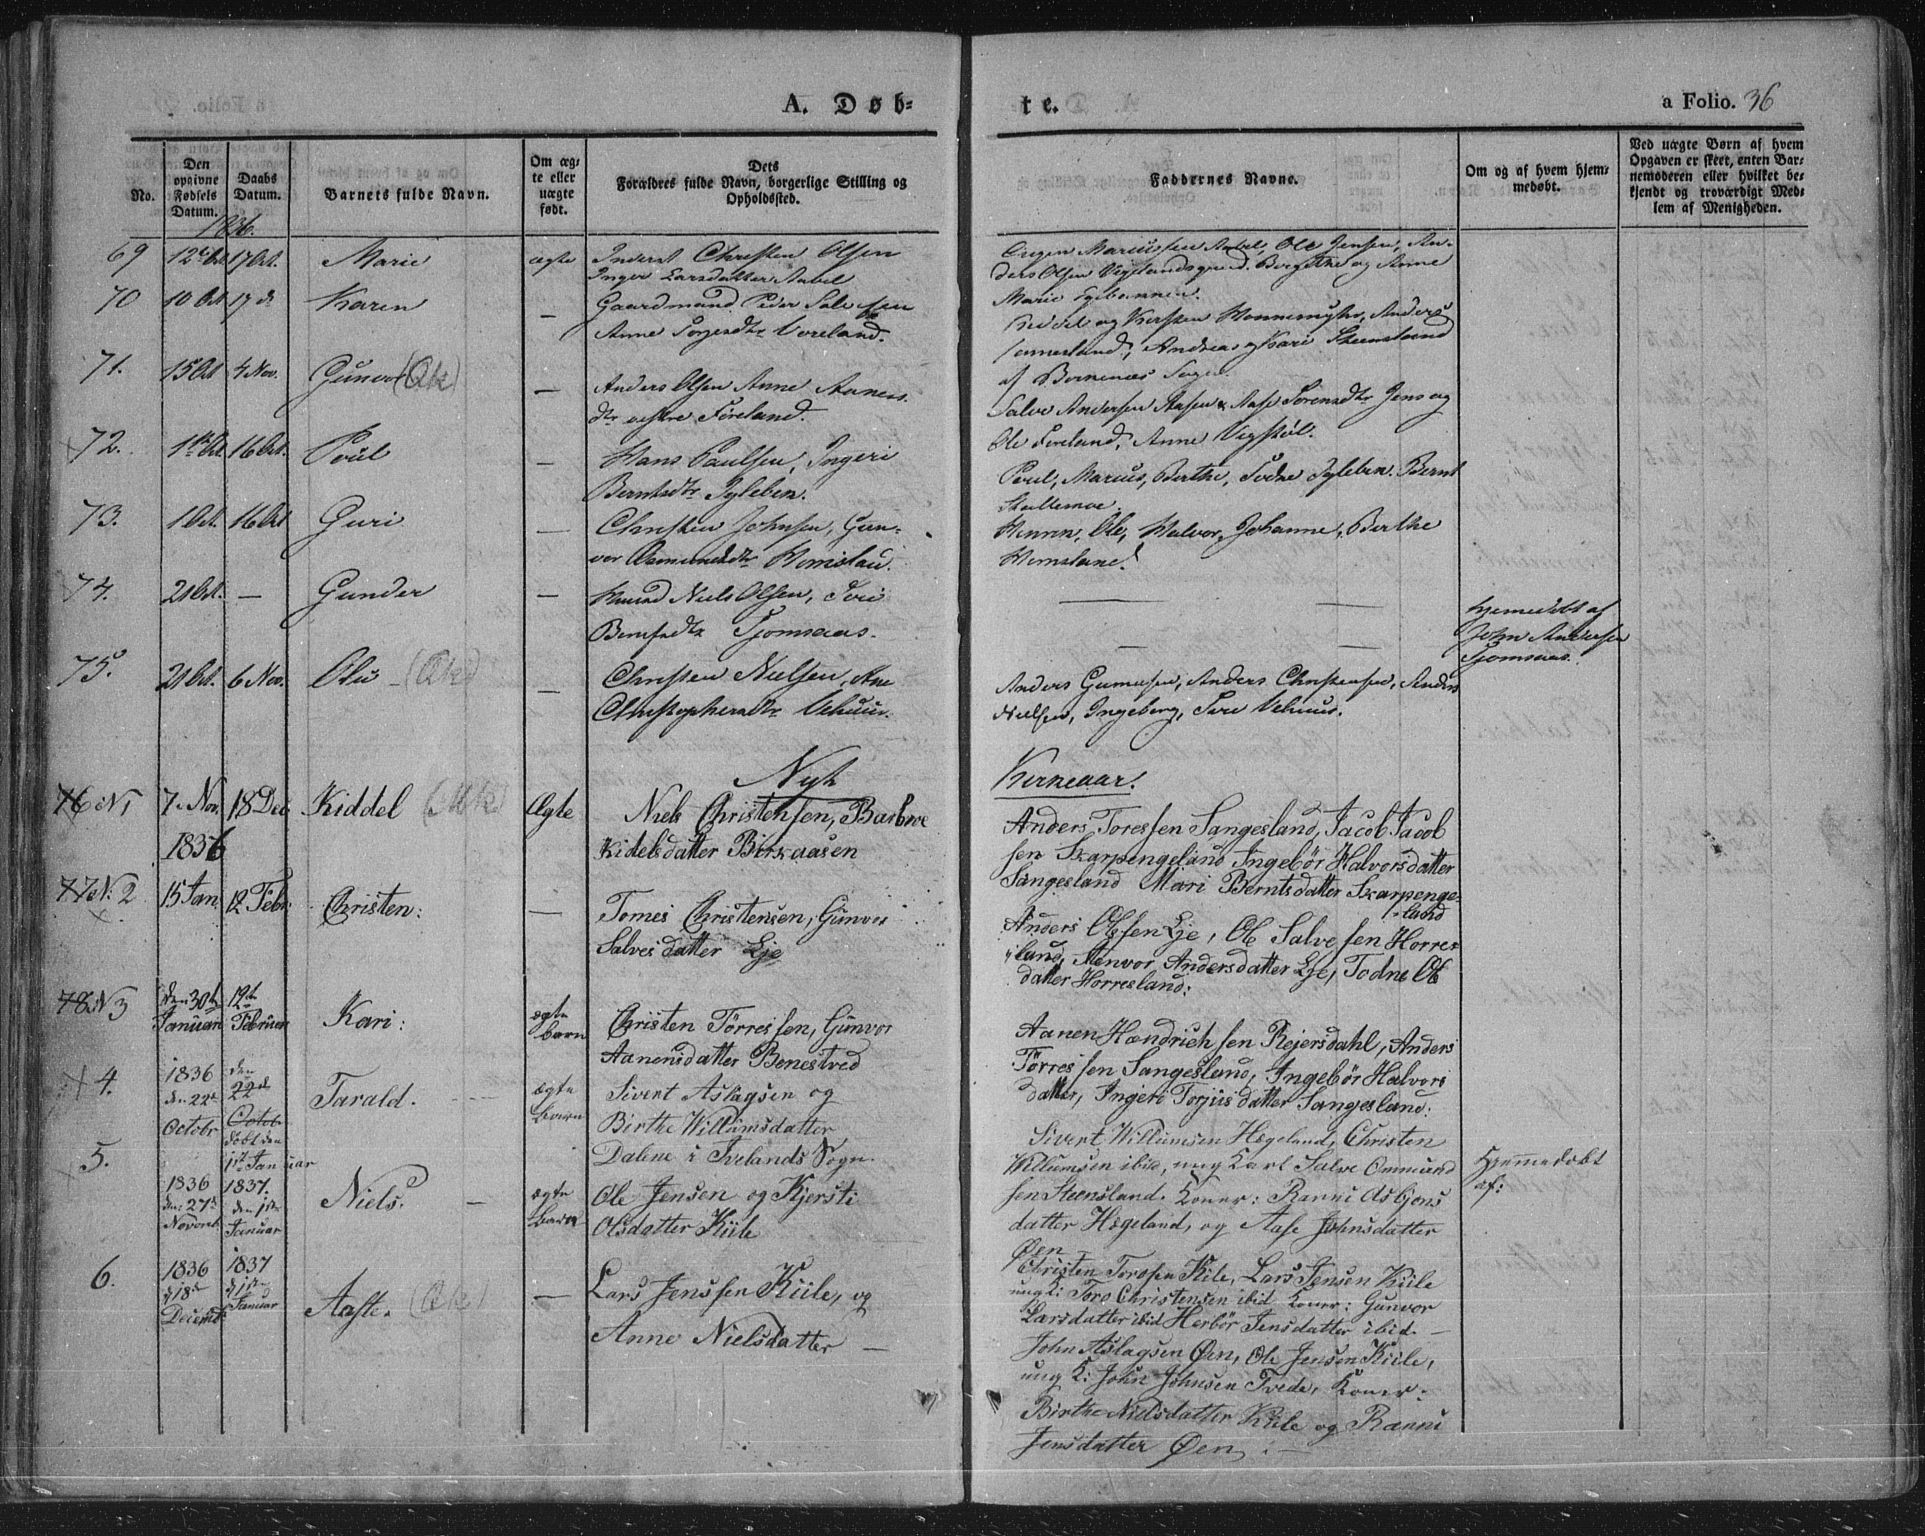 A. Døb-
te.
a Folio. 36
No.
Den opgivne Fødsels Datum.
Daabs Datum.
Barnets fulde Navn.
Om ægte eller uægte født.
Dets Forældres fulde Navn, borgerlige Stilling og Opholdssted.
Faddernes Navne.
Om og af hvem hjemmedøbt.
Ved uægte Børn af hvem Opgaven er skeet, enten Barnemoderen eller hvilket bekjendt og troværdigt Medlem af Menigheden.
1836.
69 12te Oct. 17 Oct. Marie ægte Inderst Christen Olsen
Inger Larsdatter Aabel
Olsen Vigelandsgaard. Bergithe og Anne
Marie
70 10 Oct 17 d Karen — Gaardmand Peder Salvesen
Anne Torjersdtr Voreland.
Anders
Andreas og Kari Steensland
71. 15 Oct 4 Nov. Gunvor (Øk) — Anders Olsen Anne Aanens
dtr østre Føreland.
Salve Andersen Aasen, Aase Sørensdtr Jens og
Ole Foreland, Anne Vigstøl.
72. 1ste Oct. 16 Oct. Poul — Hans Paulsen, Ingeri
Berntsdtr Igleben.
Poul, Marius, Berthe, Todne Igleben. Bernt
73. 1 Oct. 16 Oct Guri — Christen Johnsen, Gun-
vor Asmundsdtr Homsland.
Ole, Halvor, Johanne, Berthe
Homsland.
74. 21 Oct. — Gunder — Huusmd Niels Olsen, Siri
Berntsdtr Tjomsaas.
Hjemmedøbt af
John Andersen
Tjomsaas.
75. 21 Oct. 6 Nov. Ole (Øk) — Christen Nielsen, Ane
Christophersdtr Vehuus.
Anders Gunnersen, Anders Christensen, Anders
Nielsen, Ingeborg, Tore Vehuus.
Nyt
Kirkeaar.
76 N1 7. Nov. 18 Dec Kiddel (Øk) Ægte Niels Christensen, Barbroe
1836
Kidelsdatter Birkaasen
Anders Toressen Sangesland, Jacob Jacob
sen Skarpengeland Ingebør Halvorsdatter
Sangesland Mari Berntsdatter Skarpenge-
land
77 N. 2 15 Jan 12 Febr. Christen: — Tomes Christensen, Gunvor
Salvesdatter Eje
Anders Olsen Eje, Ole Salvesen Horres
land, Aenvor Andersdatter Eje, Todne Ols
datter Horresland:
78 N 3 den 30te Januari 19de Februar Kari: ægte barn Christen Tørressen, Gunvor
Aanensdatter Benestved
Aanen Hændrichsen Rejersdahl, Anders
Tørressen Sangesland, Ingebør Halvors
datter, Ingeri Torjusdatter Sangesland:
4. 1836 den 22de Octobr den 22de Octobr Døbt den 1ste Januar 1837. Tarald. ægte barn Sivert Aslagsen og
Birthe Willumsdatter
Dalene i Ivelands Sogn.
Sivert Willumsen Hægeland, Christen
Willumsen ibid, ung Karl Salve Ommund
sen Steensland. Koner: Ranni Asbjøns
datter Hægeland, og Aase Johnsdatter
Øen
5. 1836 den 27de Novemb. den 1ste Januar Niels. — ægte barn Ole Jensen og Kjersti
Olsdatter Kiile
Hjemmedøbt
af:
Christen Torosen Kiile, Lars Jensen Kiile
ung K: Toro Christensen ibid Koner: Gunvor
Larsdatter ibid Herbør Jensdatter ibid. —
6. 1836 d. 18de Decemb. 1837 d. 1ste Januar Aaste. (Øk) — Lars Jenssen Kiile, og
Anne Nielsdatter —
John Aslagsen Øen, Ole Jensen Kiile,
ung K: John Johnsen Tvede, Koner:
Birthe Nielsdatter Kiile og Ranni
Jensdatter Øen. —